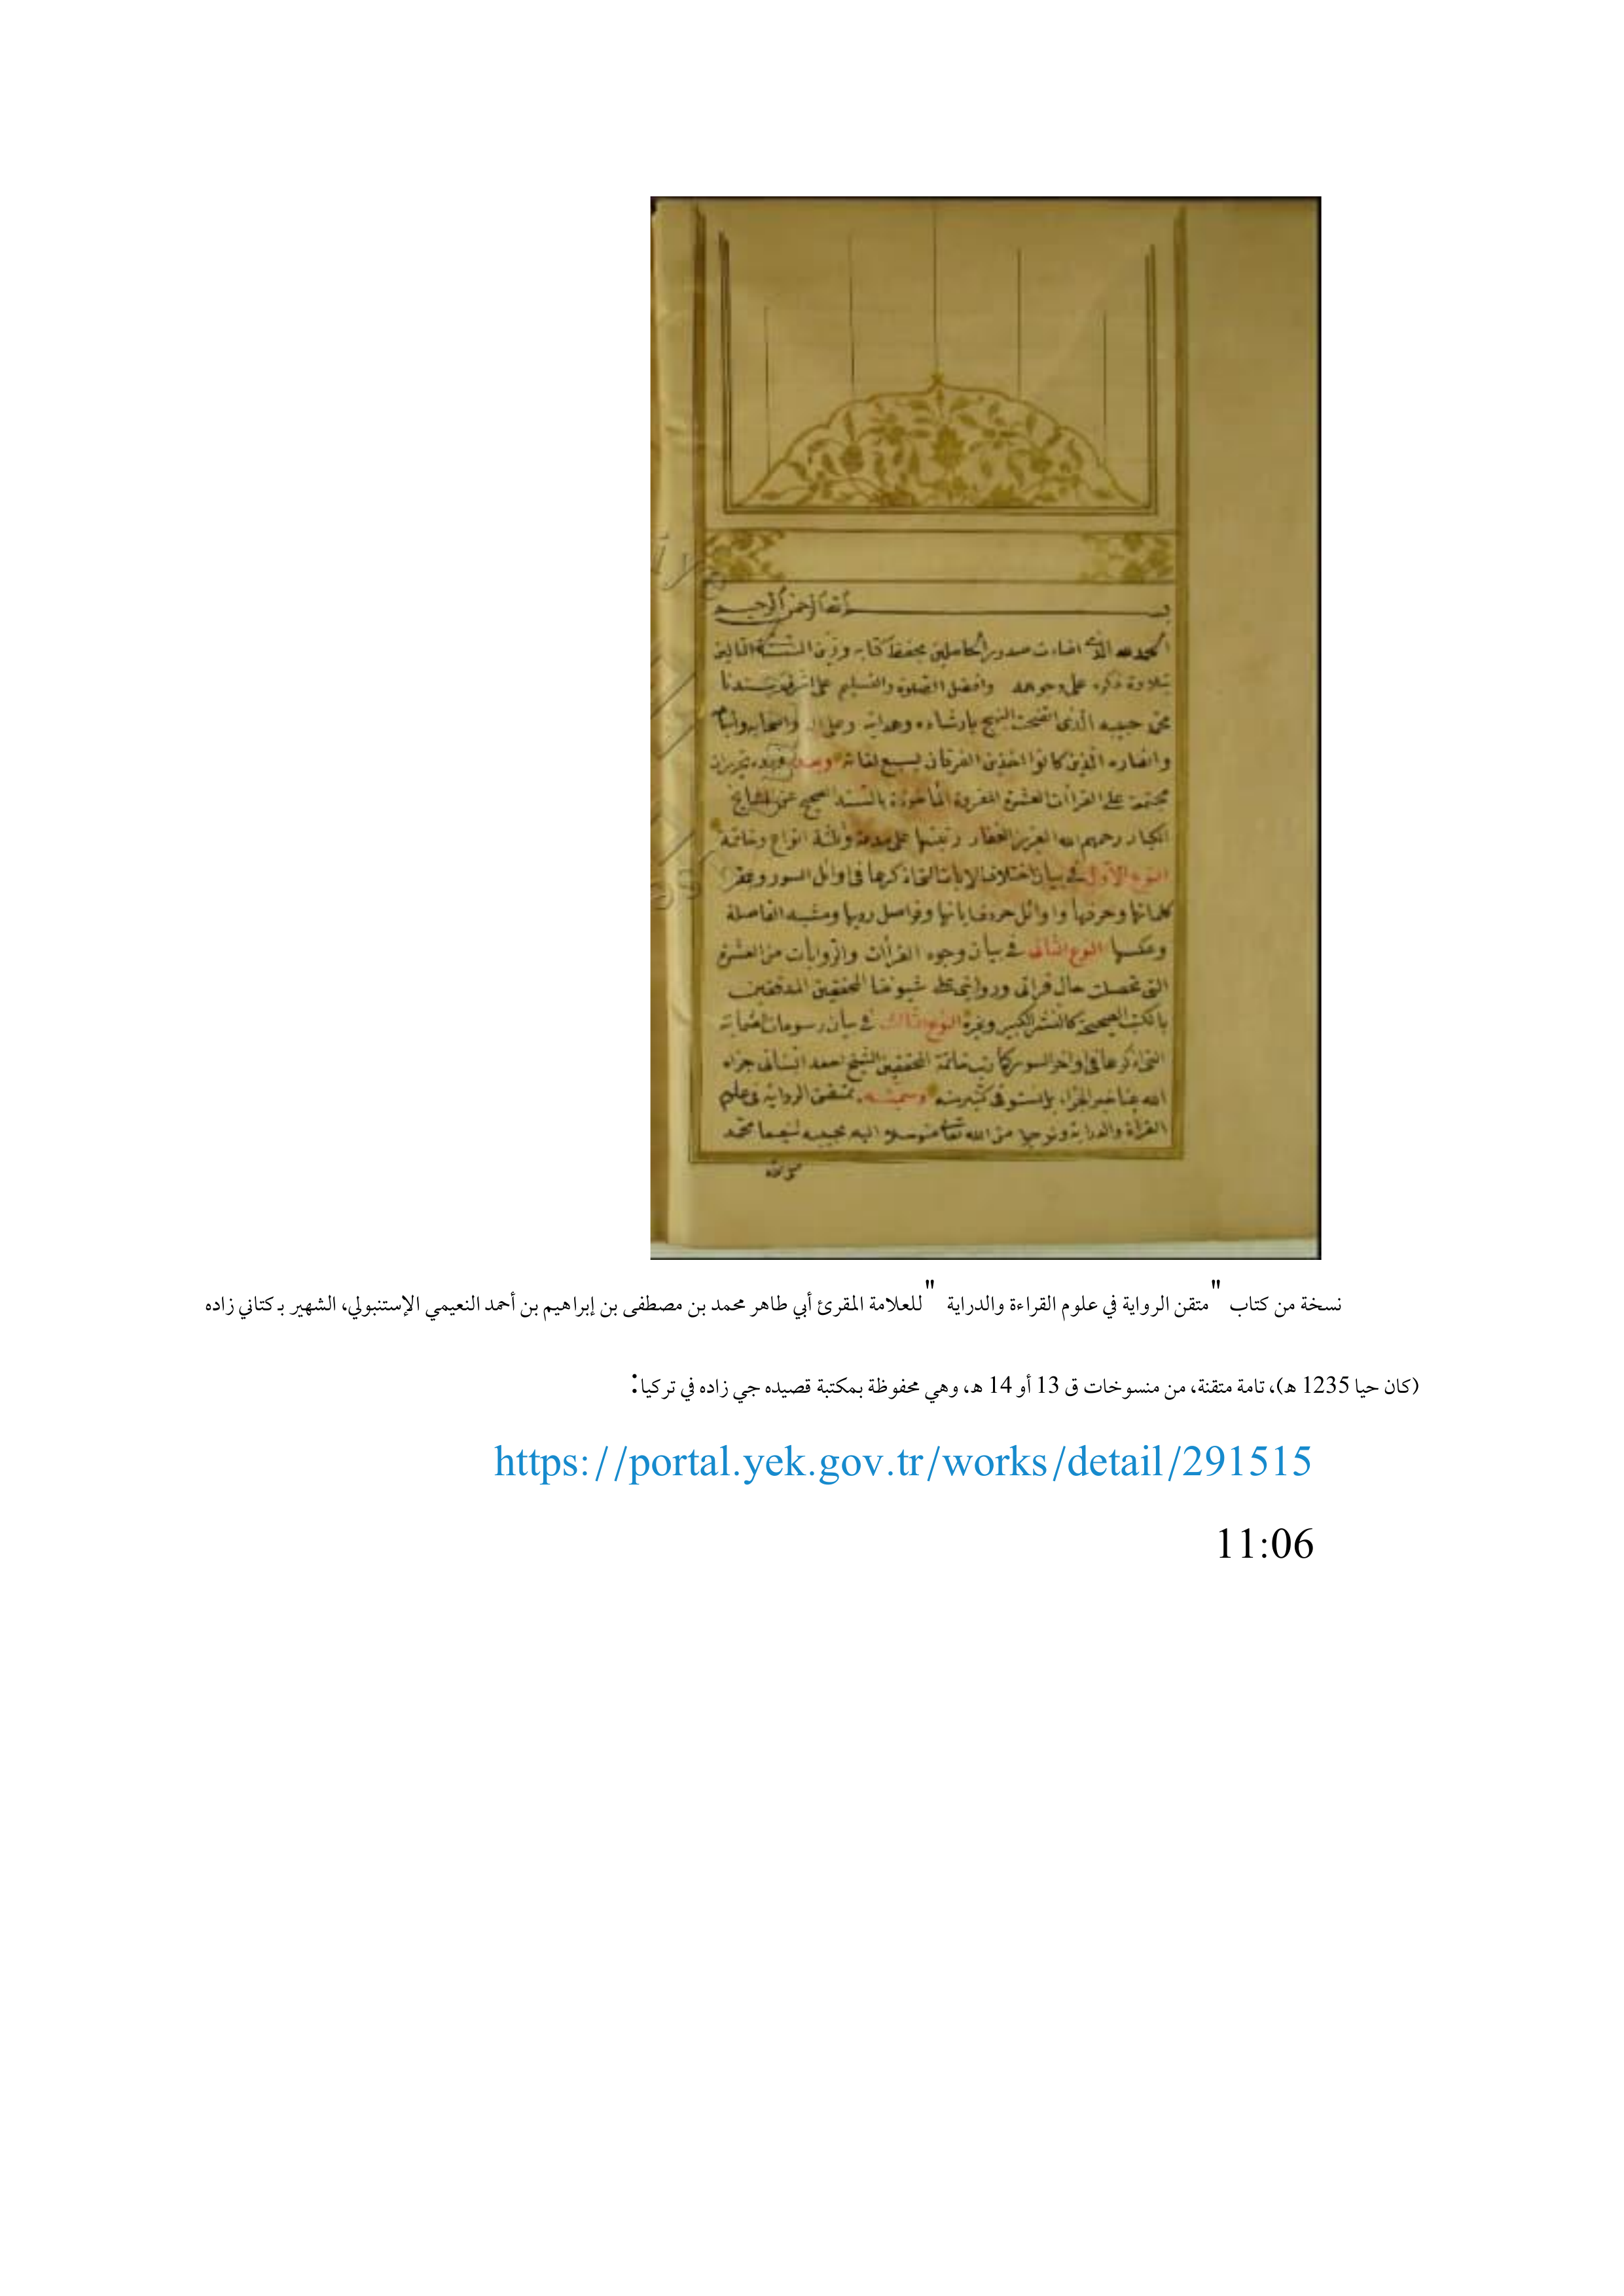 الحمد لله الذي اضاءت صدور الحاملين بحفظ كتابه وزين السنة التالين
بتلاوة ذكره على وجوهه وافضل الصلوة والتسليم على سيدنا
حبيبه الذي اتضحت النهج بارشاده وهدايته وعلى اله واصحابه
وانصاره الذين كانوا اخذين الفرقان بسبع لغاته وبعد فهذه
على القراآت العشرة المقروة المأخوذة بالسند الصحيح عن المشايخ
الكبار رحمهم الله العزيز الغفار رتبتها على مقدمة وثلثة انواع وخاتمة
النوع الاول في بيان اختلاف الايات التي اذكرها في اوائل السور وعقد
كلماتها وحرفها واوائل حروف اياتها وفواصل رويها ومشبه الفاصلة
وعكسها النوع الثاني في بيان وجوه القرأات والروايات من العشرة
التي تحصلت حال قراتي وروايتي على شيوخنا المحققين المدققين
بالكتب الصحيحة كالنشر الكبير وغيره النوع الثالث في بيان رسومات عثمانية
التي اذكرها في اواخر السور كما رتب خاتمة المحققين الشيخ احمد البناء جزاه
الله عنا خير الجزاء وسميته بمتقن الرواية في علوم
القرأة والدراية ونرجوا من الله تعالى متوسلا اليه بحبيبه شفيعنا محمد
نسخة من كتاب "متقن الرواية في علوم القراءة والدراية "للعلامة المقرئ أبي طاهر محمد بن مصطفى بن إبراهيم بن أحمد النعيمي الإستنبولي، الشهير بـ كتاني زاده
(كان حيا 1235 هـ)، تامة متقنة، من منسوخات ق 13 أو 14 هـ، وهي محفوظة بمكتبة قصيده جي زاده في تركيا:
https://portal.yek.gov.tr/works/detail/291515
11:06